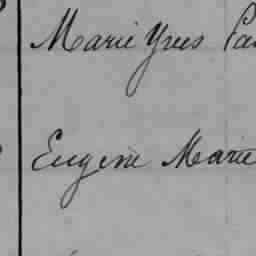 Marie Yves
Eugène Marie